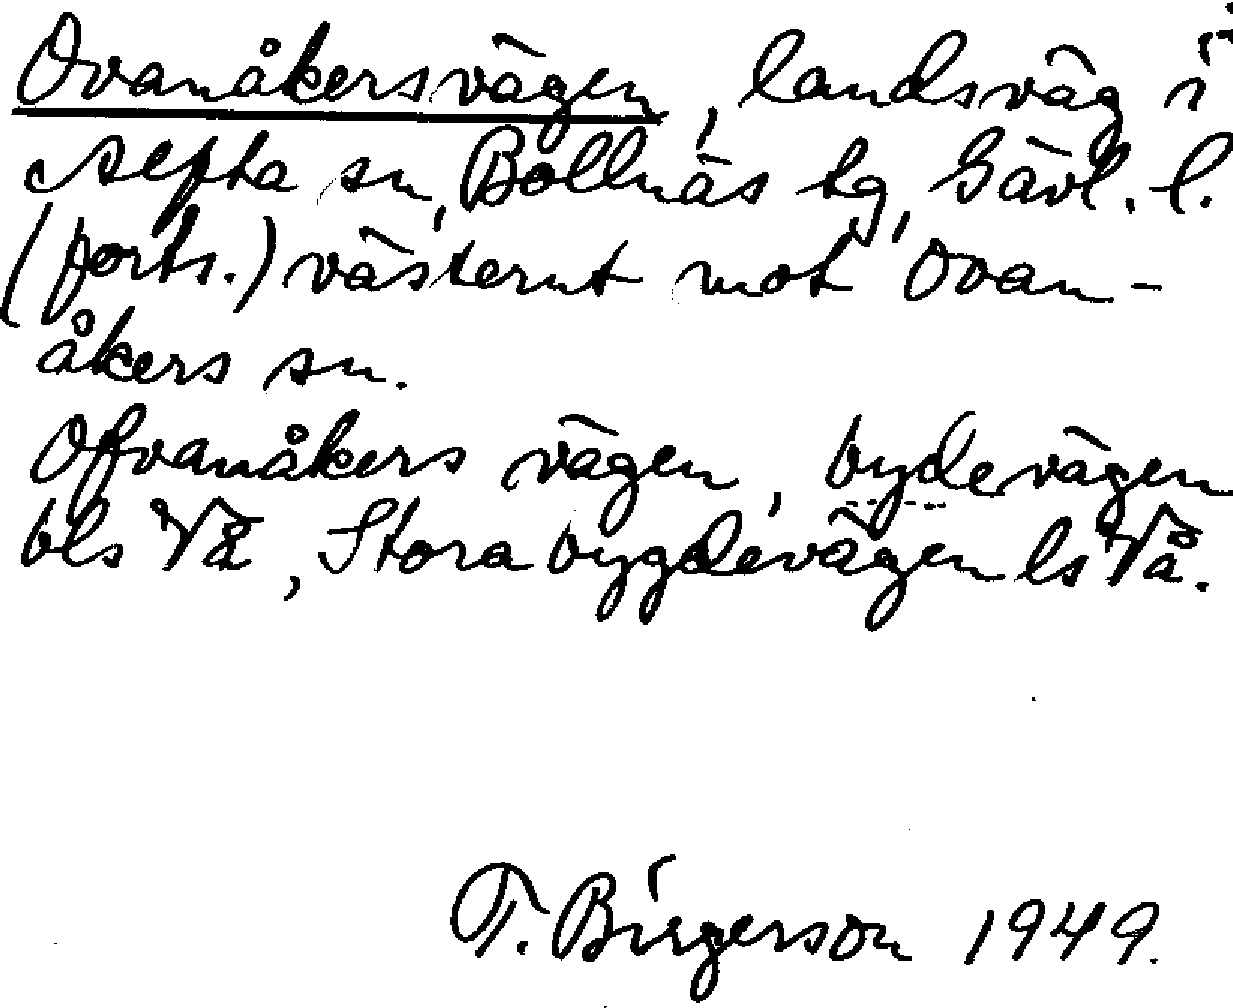 Ovanåkersvägen, landsväg i
Alfta sn, Bollnäs tg, Gävl. l.
(forts.) västerut mot Ovan-
åkers sn.
Ofvanåkers vägen, bydevägen
bls Vä, Stora bygdevägen ls Vä.
T. Birgerson 1949.